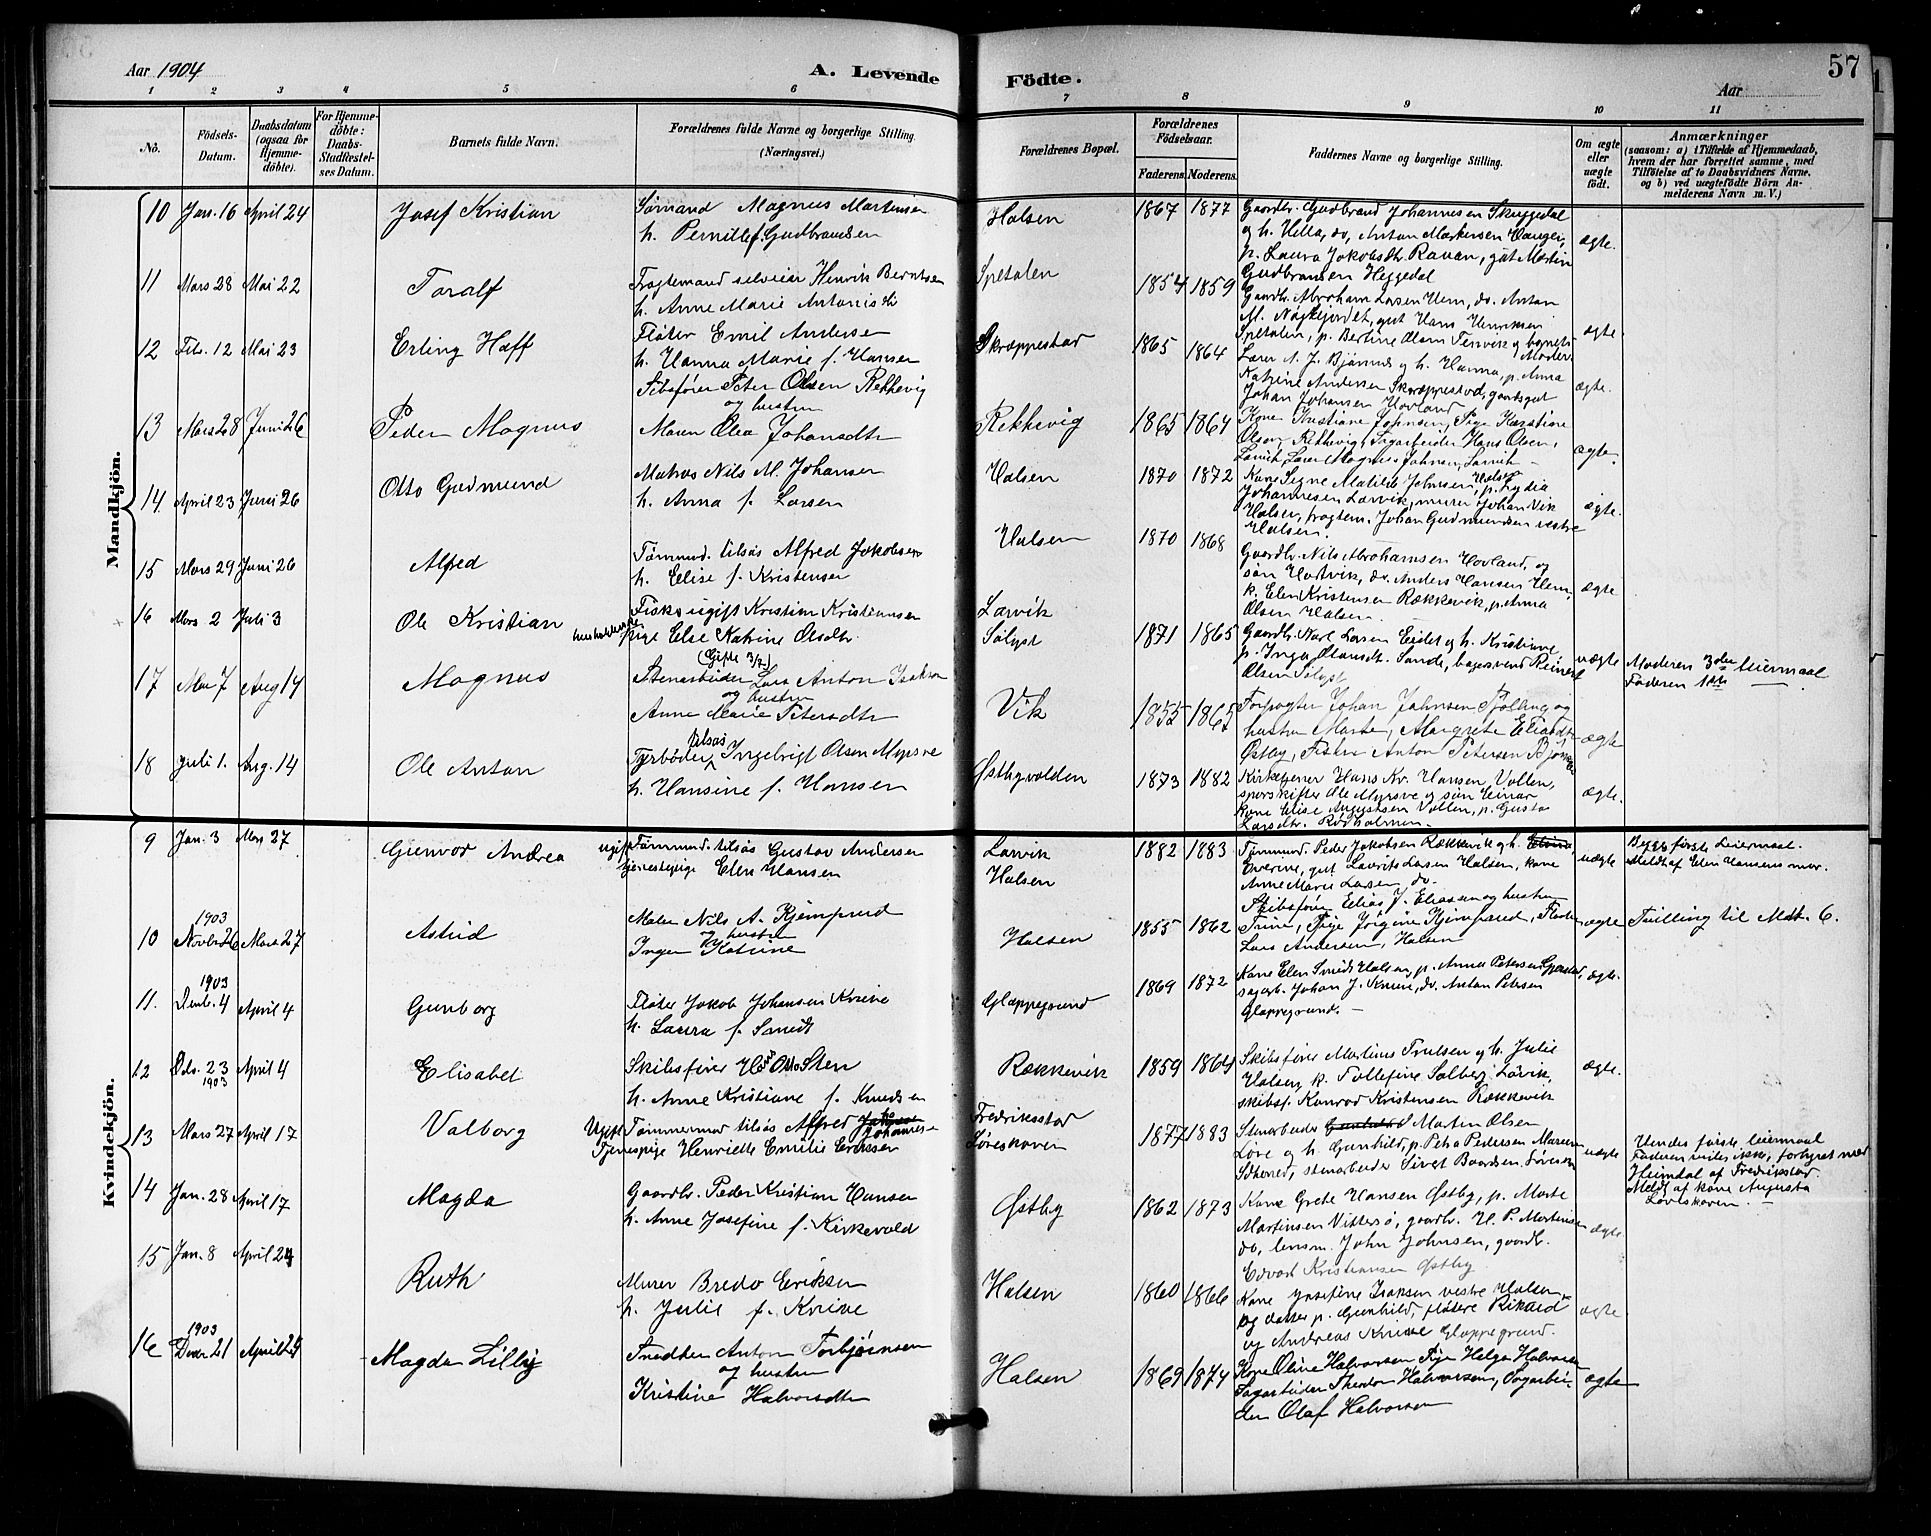 Aar 1904
A. Levende
Födte.
57
Aar
1 2 3 4 5 6 7 8 9 10 11
No.
Födsels-Datum.
Daabsdatum (ogsaa for Hjemme-döbte).
For Hjemme-döbte: Daabs-Stadfæstel-ses Datum.
Barnets fulde Navn.
Forældrenes fulde Navne og borgerlige Stilling.
(Næringsvei.)
Forældrenes Bopæl.
Forældrenes Födselsaar.
Faderens. Moderens.
Faddernes Navne og borgerlige Stilling.
Om ægte eller uægte födt.
Anmærkninger
(saasom: a) i Tilfælde af Hjemmedaab, hvem der har forrettet samme, med Tilföielse af to Daabsvidners Navne, og b) ved uægtefödte Börn An-melderens Navn m. V.)
Mandkjön.
10 Jan. 16 April 24 Josef Kristian
Sömand Magnus Martensen
h. Pernille f. Gudbrandsen
Halsen 1867 1877
Gaardbr. Gudbrand Johannesen Skuggedal
og h. Hella, do. Anton Markussen Vauger,
p. Laura Jakobsdtr. Rauan, gut Martin
Gudbransen Heggedal
ægte.
11 Mars 28 Mai 22 Toralf
Fragtemand selveier Henrik Berntsen
h. Anne Marie Antonisdtr
Spetalen 1854 1859
Gaardbr. Abraham Larsen Hem, do. Anton
M. Nøgkjordet, gut Hans Henriksen
Spetalen, p. Bertine Olsen Tenvik og barnets
Moder.
ægte.
12 Feb. 12 Mai 23 Erling Haff
Fløter Emil Andersen
h. Hanna Marie f. Hansen
Skræppestad 1865 1864
Lærer A. J. Bjönnes og h. Hanna, p. Anna
Katrine Andersen Skræppestad, gaardsgut
Johan Johansen Hovland
ægte.
13 Mars 28 Juni 26 Peder Magnus
Skibsförer Peter Olsen Rekkevig
og hustru
Maren Olea Johansdtr
Rekkevig 1865 1864
Kone Kristiane Johnsen, Pige Karstine
Olsen, Rekkevig, Sagarbeider Hans Olsen,
Larvik, Lærer Magnus Johnsen, Larvik —
ægte.
14 April 23 Juni 26 Otto Gudmund
Matros Nils M. Johansen
h. Anna f. Larsen
Halsen 1870 1872
Kone Signe Matilde Johnsen, Halsen, p. Lydia
Johannesen Larvik, murer Johan Vik
Halsen, fragtem. Johan Gudmundsen vestre
Halsen.
ægte.
15 Mars 29 Juni 26 Alfred
Tømmrmd. tilsøs Alfred Jakobsen
h. Elise f. Kristensen
Halsen 1870 1868
Gaardbr. Nils Abrahamsen Hovland, og
søn Hartvik, do. Anders Hansen Hem,
k. Elen Kristensen Rækkevik, p. Anna
Olsen Halsen.
ægte
16 Mars 2 Juli 3 Ole Kristian
Fisker ugift Kristian Kristiansen
husholderske pige Else Katrine Olsdtr.
(Gifte 3/7)
Larvik
Sølyst
1871 1865
Gaardbr. Karl Larsen Eidet og h. Kristiane
p. Inga Olausdt. Sande, bagersvend Reinert
Olsen Sölyst
uægte
Moderen 3die leiermaal
Faderen 1ste —
17 Mai 7 Aug 14 Magnus
Stenarbeider Lars Anton Isaksen
og hustru
Anne Marie Petersdtr
Vik 1855 1865
Forpagter Johan Johnsen Tjølling og
hustru Marte, Margrete Eliasdtr
Østby, Fisker Anton Petersen Bjønnes
ægte
18 Juli 1. Aug. 14 Ole Anton
Fyrbøder tilsøs Ingebrigt Olsen Myrsve
h. Hansine f. Hansen
Østbyvolden 1873 1882
Kirketjener Hans Kr. Hansen Vollen,
sporskifter Ole Myrsve og søn Einar
kone Elise Augustsen Vollen, p. Gusta
Larsdtr. Rødholmen.
ægte.
Kvindekjön.
9 Jan. 3 Mars 27 Gunvor Andrea
ugift Tømmrmd. tilsøs Gustav Andersen
tjenestepige Elen Hansen
Larvik
Halsen
1882 1883
Tømmrmd. Peder Jakobsen Rækkevik og h.
Everine, gut Laurits Larsen Halsen, kone
Anne Marie Larsen do.
uægte
Begges første Leiermaal.
Meldt af Elen Hansens mor.
10 1903 Novbr 26 Mars 27 Astrid
Maler Nils A. Kjempurud
og hustru
Inger Katrine
Halsen 1855 1862
Skibsförer Elias J. Eliassen og hustru
Trine, Pige Jörgine Kjempurud, Fløter
Lars Andersen, Halsen
ægte
Tvilling til Mdk. 6.
11. 1903 Desbr. 4 April 4 Gunborg
Fløter Jakob Johansen Knive
h. Laura f. Smidt
Glappegrund 1869 1872
Kone Elen Smidt Halsen, p. Anna Petersen
sagarb. Johan J. Knive, do. Anton Petersen
Glappegrund. —
ægte.
12 Des. 23 1903 April 4 Elisabet
Skibsfører Hs Otto Sten
h. Anne Kristiane f. Knudsen
Rækkevik 1859 1864
Skibsfører Martinus Trulsen og h. Julie
Halsen, k. Tollefine Solberg Larvik,
skibsf. Konrad Kristensen Rækkevik
ægte.
13 Mars 27 April 17 Valborg
Ugift Tømmermand tilsøs Alfred Johannesen
Tjenestepige Henriette Emilie Eriksen
Fredriksstad
Løveskoven
1877 1883
Stenarbeider Martin Olsen
Løve og h. Gunhild, p. Petra Pedersen
stenarbeider Sivert Baardsen
uægte
Hendes første leiermaal
Faderen vides ikke, forhyret med
Heimdal af Fredrikstad.
Meldt af kone Augusta
Løveskoven. —
14 Jan. 28 April 17 Magda
Gaardbr. Peder Kristian Hansen
h. Anne Josefine f. Kirkevold
Østby 1862 1873
Kone Grete Hansen Østby, p. Marte
Martinsen Vittersø, gaardb. H. P. Martinsen
do, lensm. John Johnsen, gaardb.
Edvard Kristiansen Østby
ægte
15 Jan. 8 April 24 Ruth
Murer Bredo Eriksen
h. Julie f. Knive
Halsen 1860 1866
Kone Josefine Isaksen vestre Halsen
og datter p. Gunhild, fløtere Rikard
og Andreas Knive Glappegrund.
ægte
16 1903 Desbr 21 April 24 Magda Lilly
Snedker Anton Torbjørnsen
og hustru
Kristine Halvorsdtr
Halsen 1869 1874
Kone Oline Halvorsen, Pige Helga Halvorsen
Sagarbeider Theodor Halvorsen, Sagarbei-
der Olaf Halvorsen
ægte